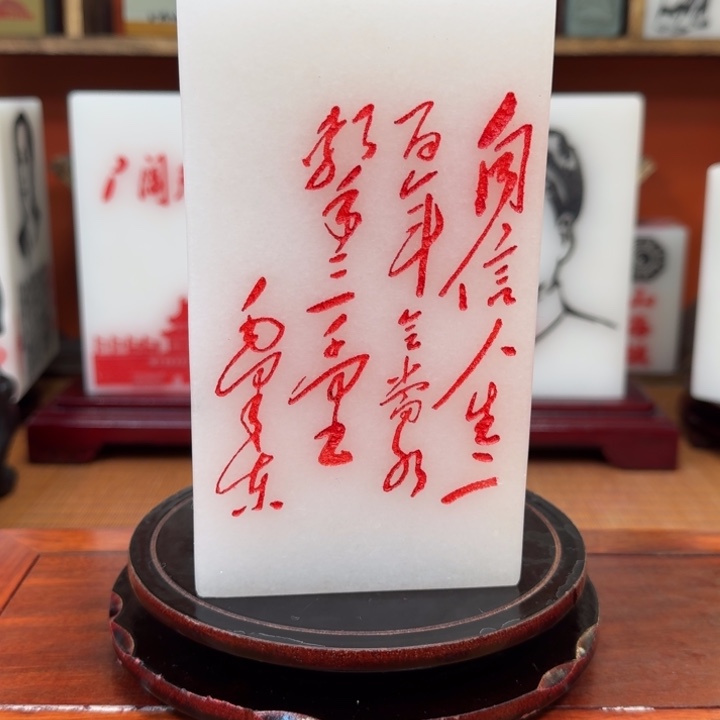 自信人生二
百年会當水
擊三千里
毛泽东
广阔